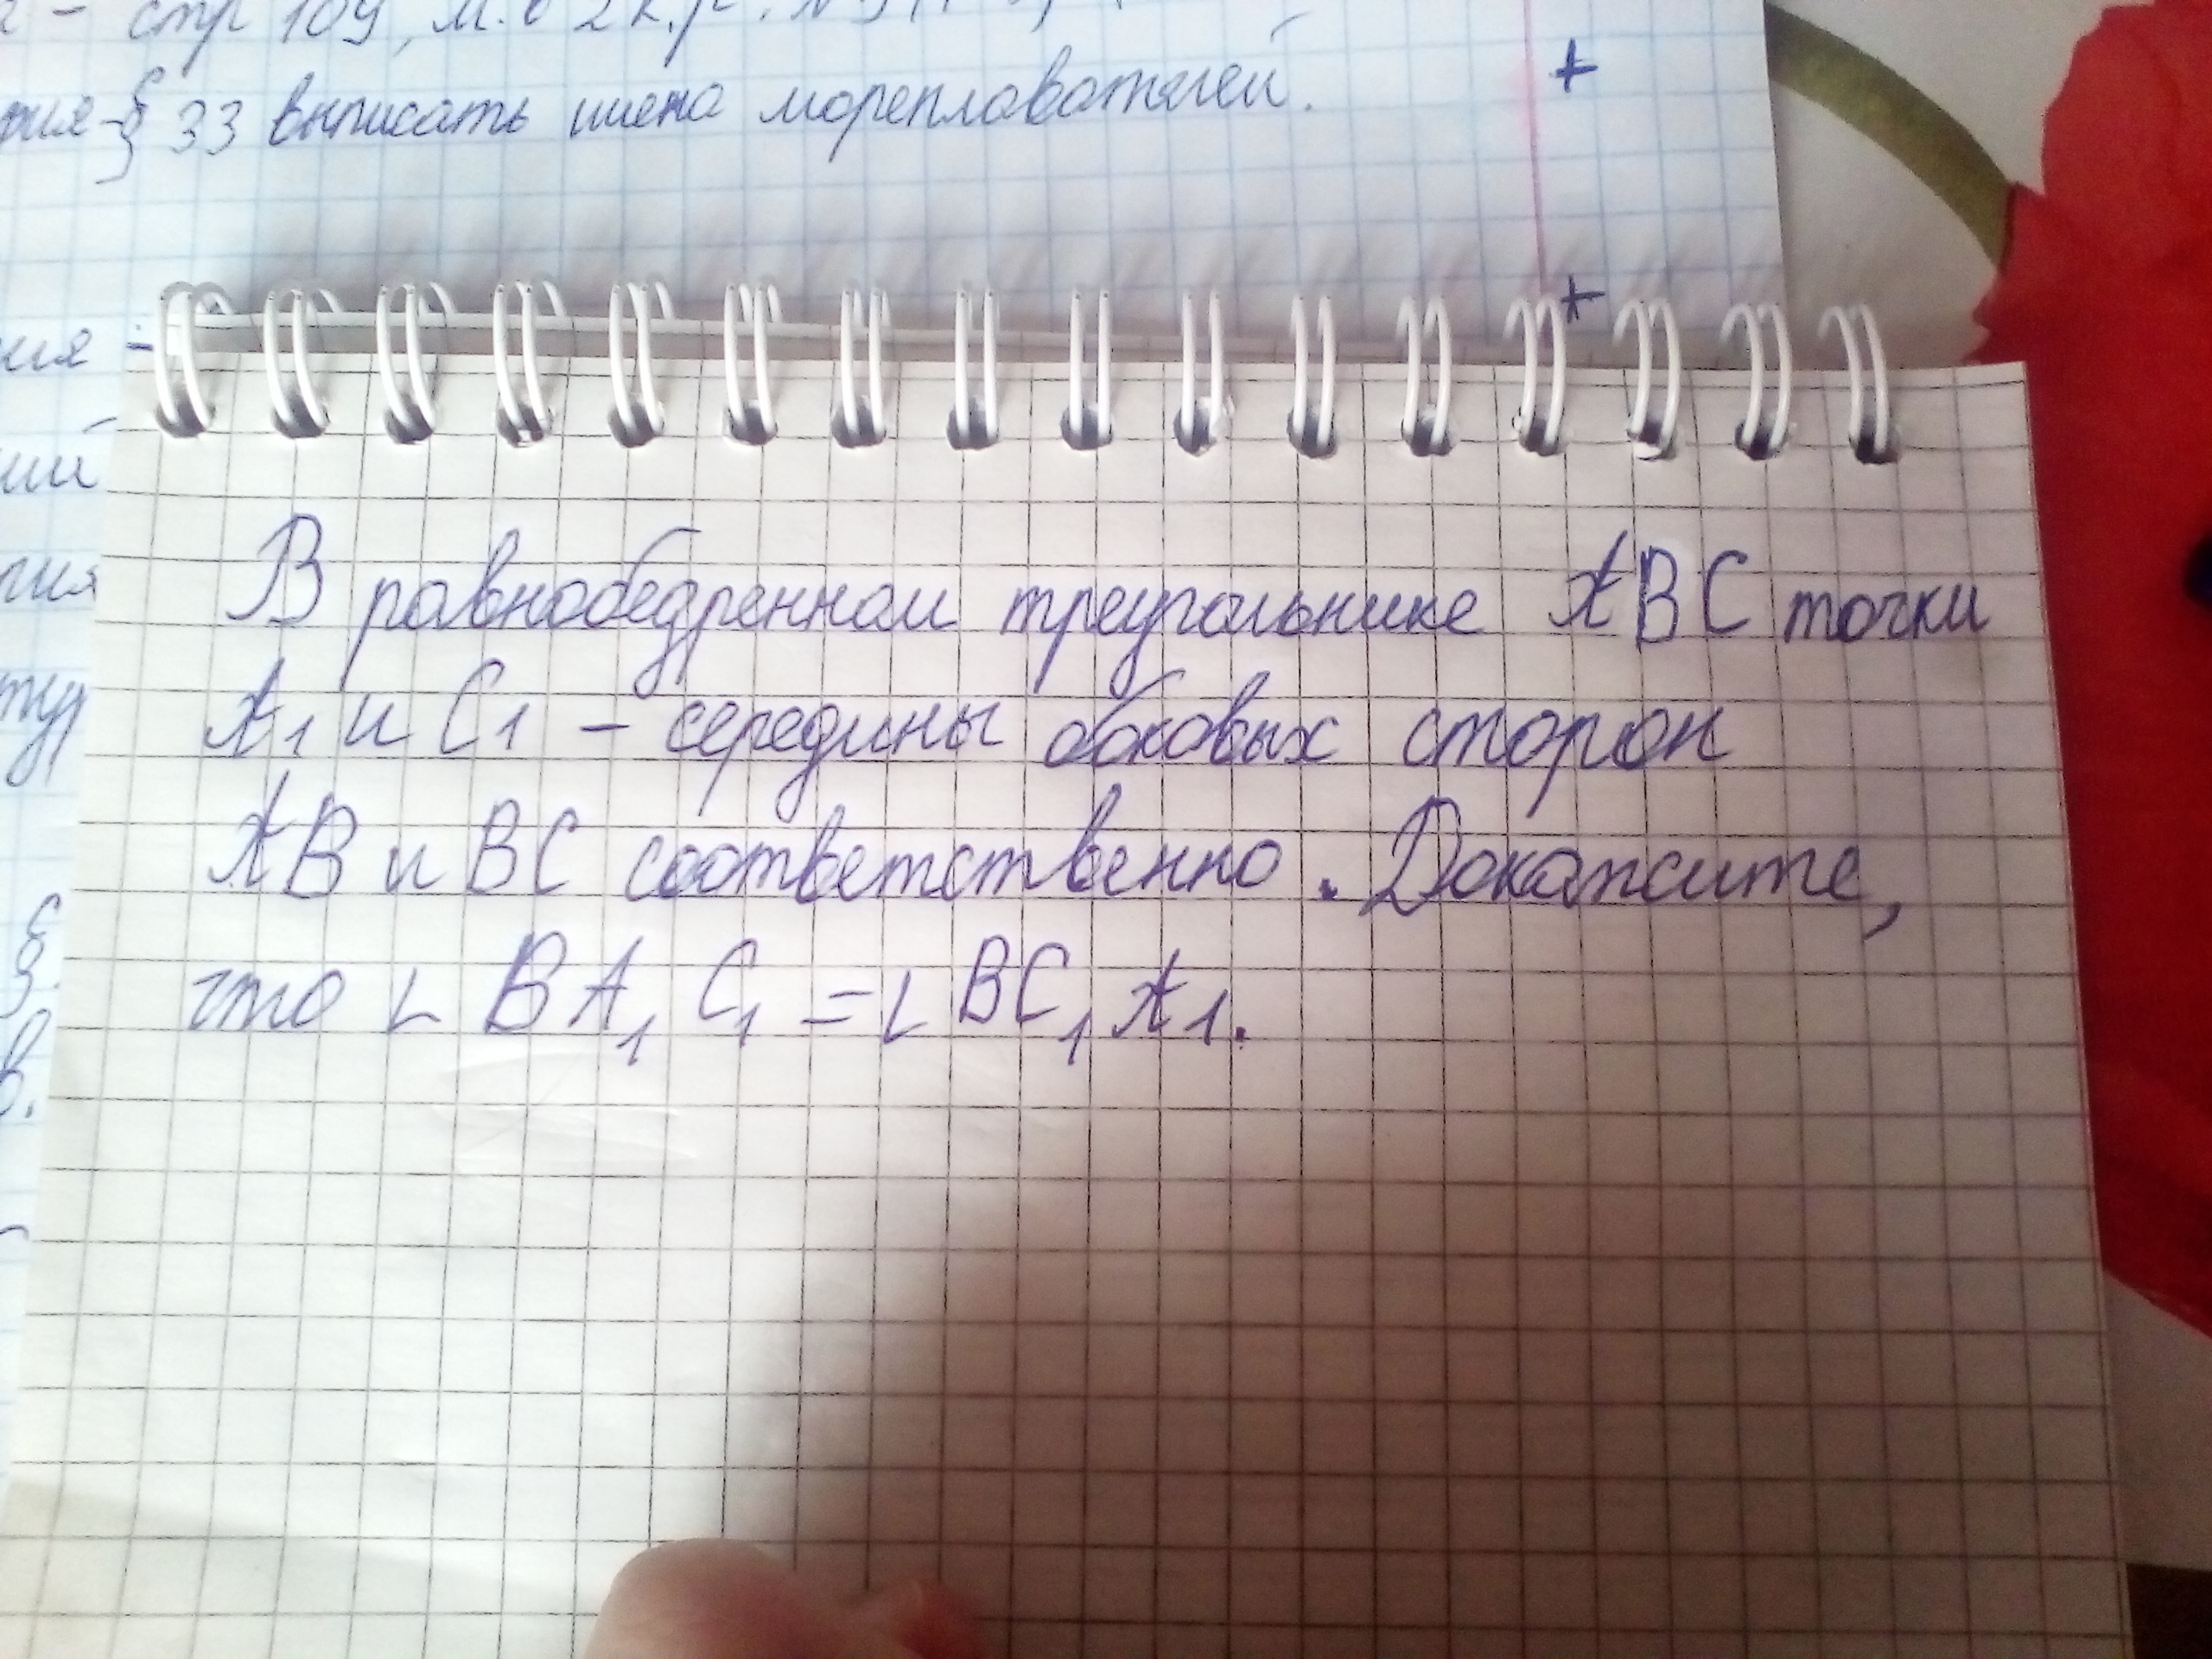 стр 109, м. в 2 к.р.
§ 33 выписать имена мореплавателей.
+
+
ния -
ий
гия
тур
§.
В равнобедренном треугольнике ABC точки
A1 и C1 - середины боковых сторон
AB и BC соответственно. Докажите,
что ∟ BA1 C1 = ∟ BC1 A1.